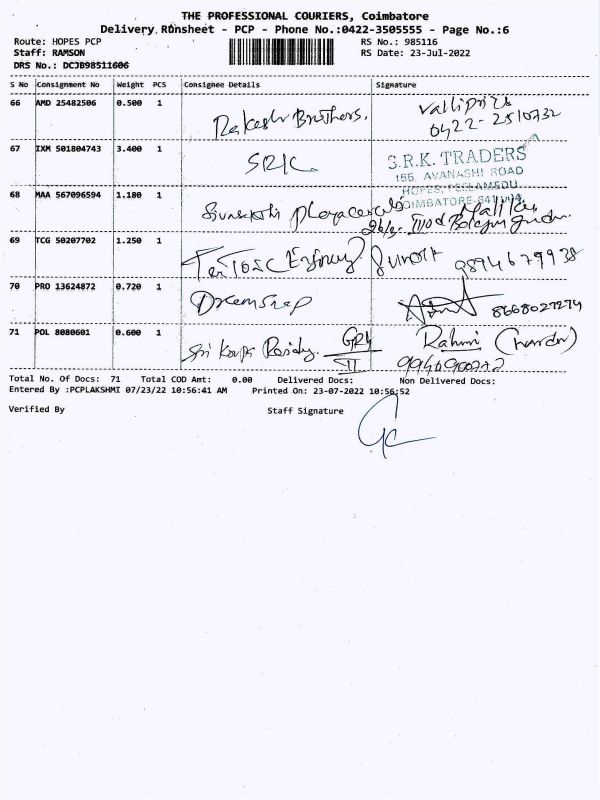 THE PROFESSIONAL COURIERS, Coimbatore
Delivery Runsheet - PCP - Phone No.:0422-3505555 - Page No.:6
Route: HOPES PCP
RS No.: 985116
Staff: RAMSON
RS Date: 23-Jul-2022
DRS No.: DCJB98511606
S No Consignment No Weight PCS Consignee Details Signature
66 AMD 25482506 0.500 1 Brothers.
0422-2510732
67 IXM 501804743 3.400 1 SRK
S.R.K. TRADERS
AVANASHI ROAD
HOPES, PEELAMEDU,
COIMBATORE-641 004.
68 MAA 567096594 1.180 1
69 TCG 50207702 1.250 1 9894679938
70 PRO 13624872 0.720 1 8668027274
71 POL 8080601 0.600 1 Sri
Total No. Of Docs: 71 Total COD Amt: 0.00 Delivered Docs: Non Delivered Docs:
Entered By :PCPLAKSHMI 07/23/22 10:56:41 AM Printed On: 23-07-2022 10:56:52
Verified By Staff Signature